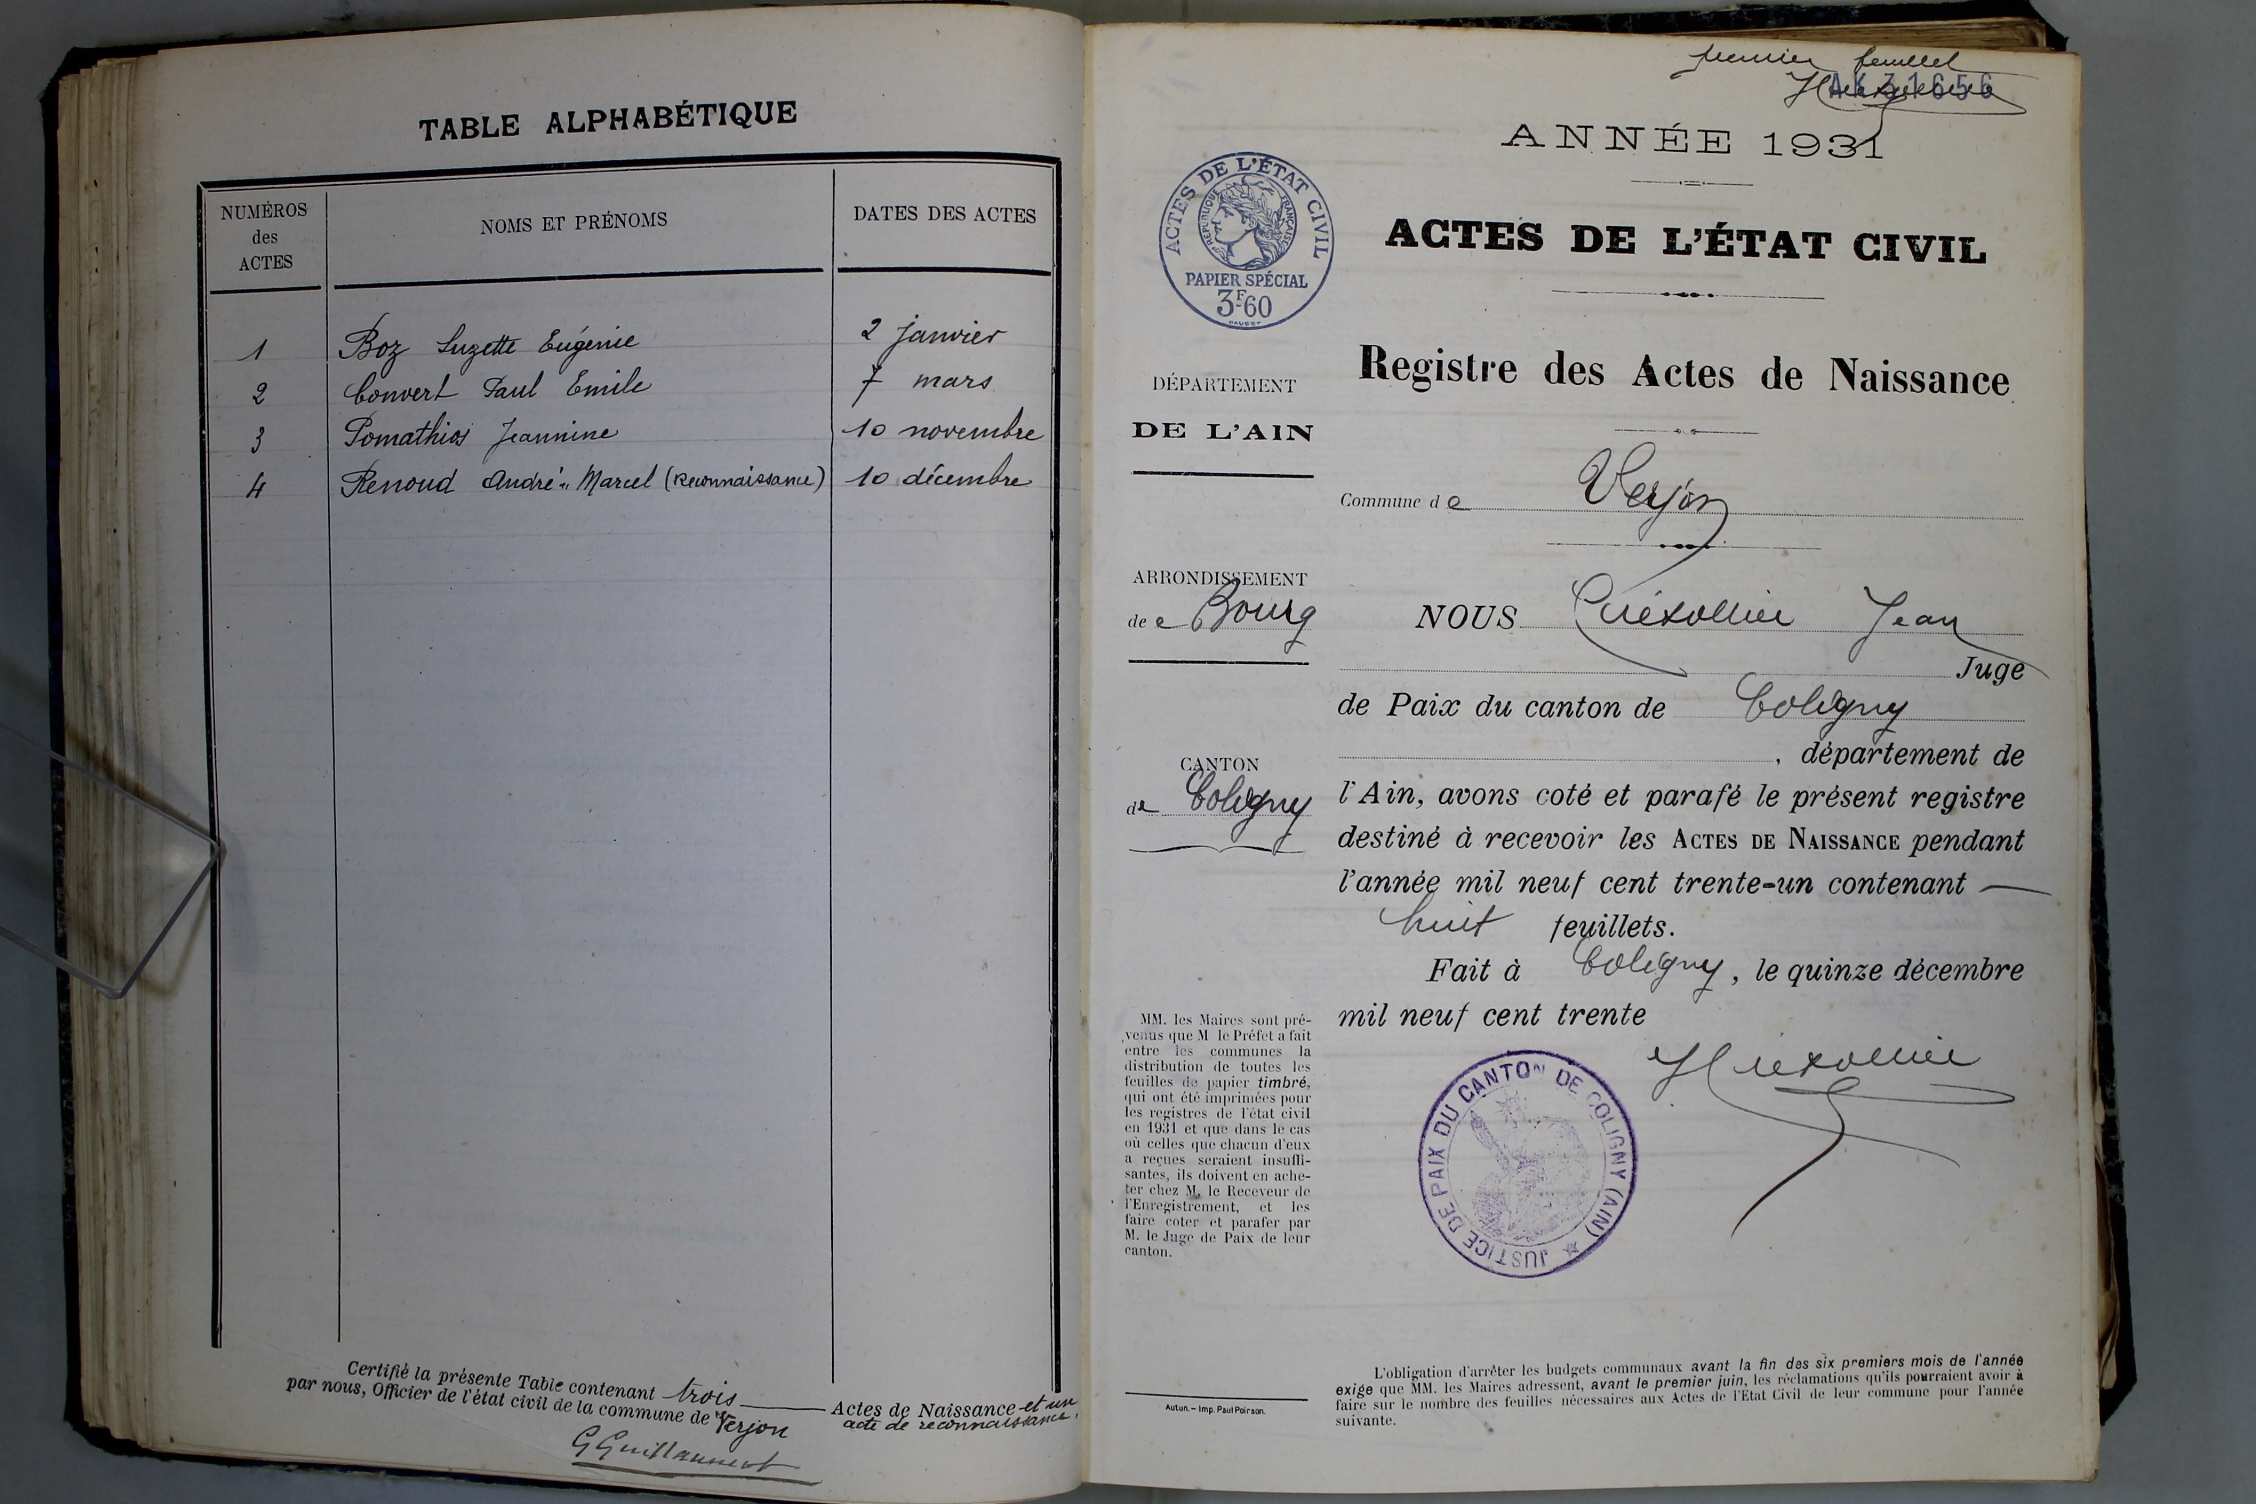 TABLE ALPHABÉTIQUE
NUMÉROS
des
ACTES
NOMS ET PRÉNOMS
DATES DES ACTES
1 Boz Suzette Eugénie 2 janvier
2 Convert Paul Emile 7 mars
3 Pomathios Jeannine 10 novembre
4 Renoud André-Marcel (Reconnaissance) 10 décembre
Certifié la présente Table contenant trois Actes de Naissance et un
par nous, Officier de l'état civil de la commune de Verjon acte de reconnaissance.
premier feuillet
AK 31656
ANNÉE 1931
ACTES DE L'ÉTAT CIVIL
RÉPUBLIQUE FRANÇAISE
PAPIER SPÉCIAL
3F60
ACTES DE L'ÉTAT CIVIL
Registre des Actes de Naissance
DÉPARTEMENT
DE L'AIN
Commune de Verjon
ARRONDISSEMENT
de e Bourg
CANTON
de Coligny
NOUS Jean
Juge
de Paix du canton de Coligny
, département de
l'Ain, avons coté et parafé le présent registre
destiné à recevoir les ACTES DE NAISSANCE pendant
l'année mil neuf cent trente-un contenant
huit feuillets.
Fait à Coligny, le quinze décembre
mil neuf cent trente
JUSTICE DE PAIX DU CANTON DE COLIGNY (AIN)
MM. les Maires sont pré-
venus que M le Préfet a fait
entre les communes la
distribution de toutes les
feuilles de papier timbré,
qui ont été imprimées pour
les registres de l'état civil
en 1931 et que dans le cas
où celles que chacun d'eux
a reçues seraient insuffi-
santes, ils doivent en ache-
ter chez M. le Receveur de
l'Enregistrement, et les
faire coter et parafer par
M. le Juge de Paix de leur
canton.
Autun. – Imp. Paul Poirson.
L'obligation d'arrêter les budgets communaux avant la fin des six premiers mois de l'année
exige que MM. les Maires adressent, avant le premier juin, les réclamations qu'ils pourraient avoir à
faire sur le nombre des feuilles nécessaires aux Actes de l'Etat Civil de leur commune pour l'année
suivante.